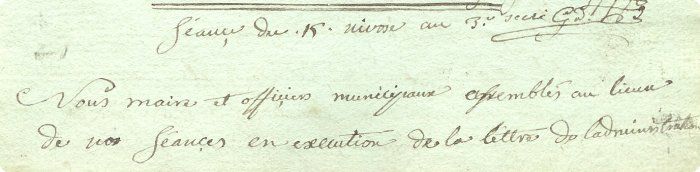 Séançe du 15. nivose au 3.e
Nous maire et officiers municipaux assemblés au lieux
de nos séançes en execution de la lettre de ladministration